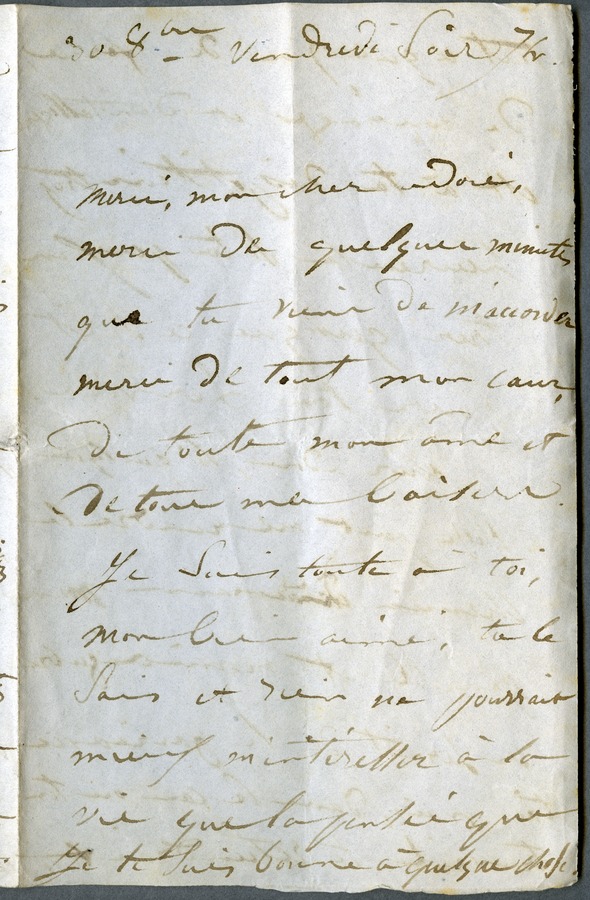 30 8bre Vendredi Soir 7h.
merci, mon cher adoré,
merci de quelques minutes
que tu viens de m'accorder
merci de tout mon cœur,
de toute mon âme et
de tous mes baisers.
Je suis toute à toi,
mon bien aimé, tu le
sais et rien ne pourrait
mieux m'intéresser à la
vie que la pensée que
Je te suis bonne à quelque chose